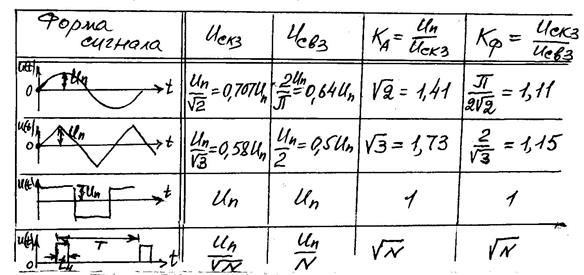 Форма сигнала | Uскз | Uсвз | K_A = Uп/Uскз | K_Ф = Uскз/Uсвз
U(t) 0 Uп t | Uп/√2 = 0,707Uп | 2Uп/π = 0,64Uп | √2 = 1,41 | π/2√2 = 1,11
U(t) 0 Uп t | Uп/√3 = 0,58Uп | Uп/2 = 0,5Uп | √3 = 1,73 | 2/√3 = 1,15
U(t) 0 Uп t | Uп | Uп | 1 | 1
U(t) 0 T t | Uп/√N | Uп/N | √N | √N